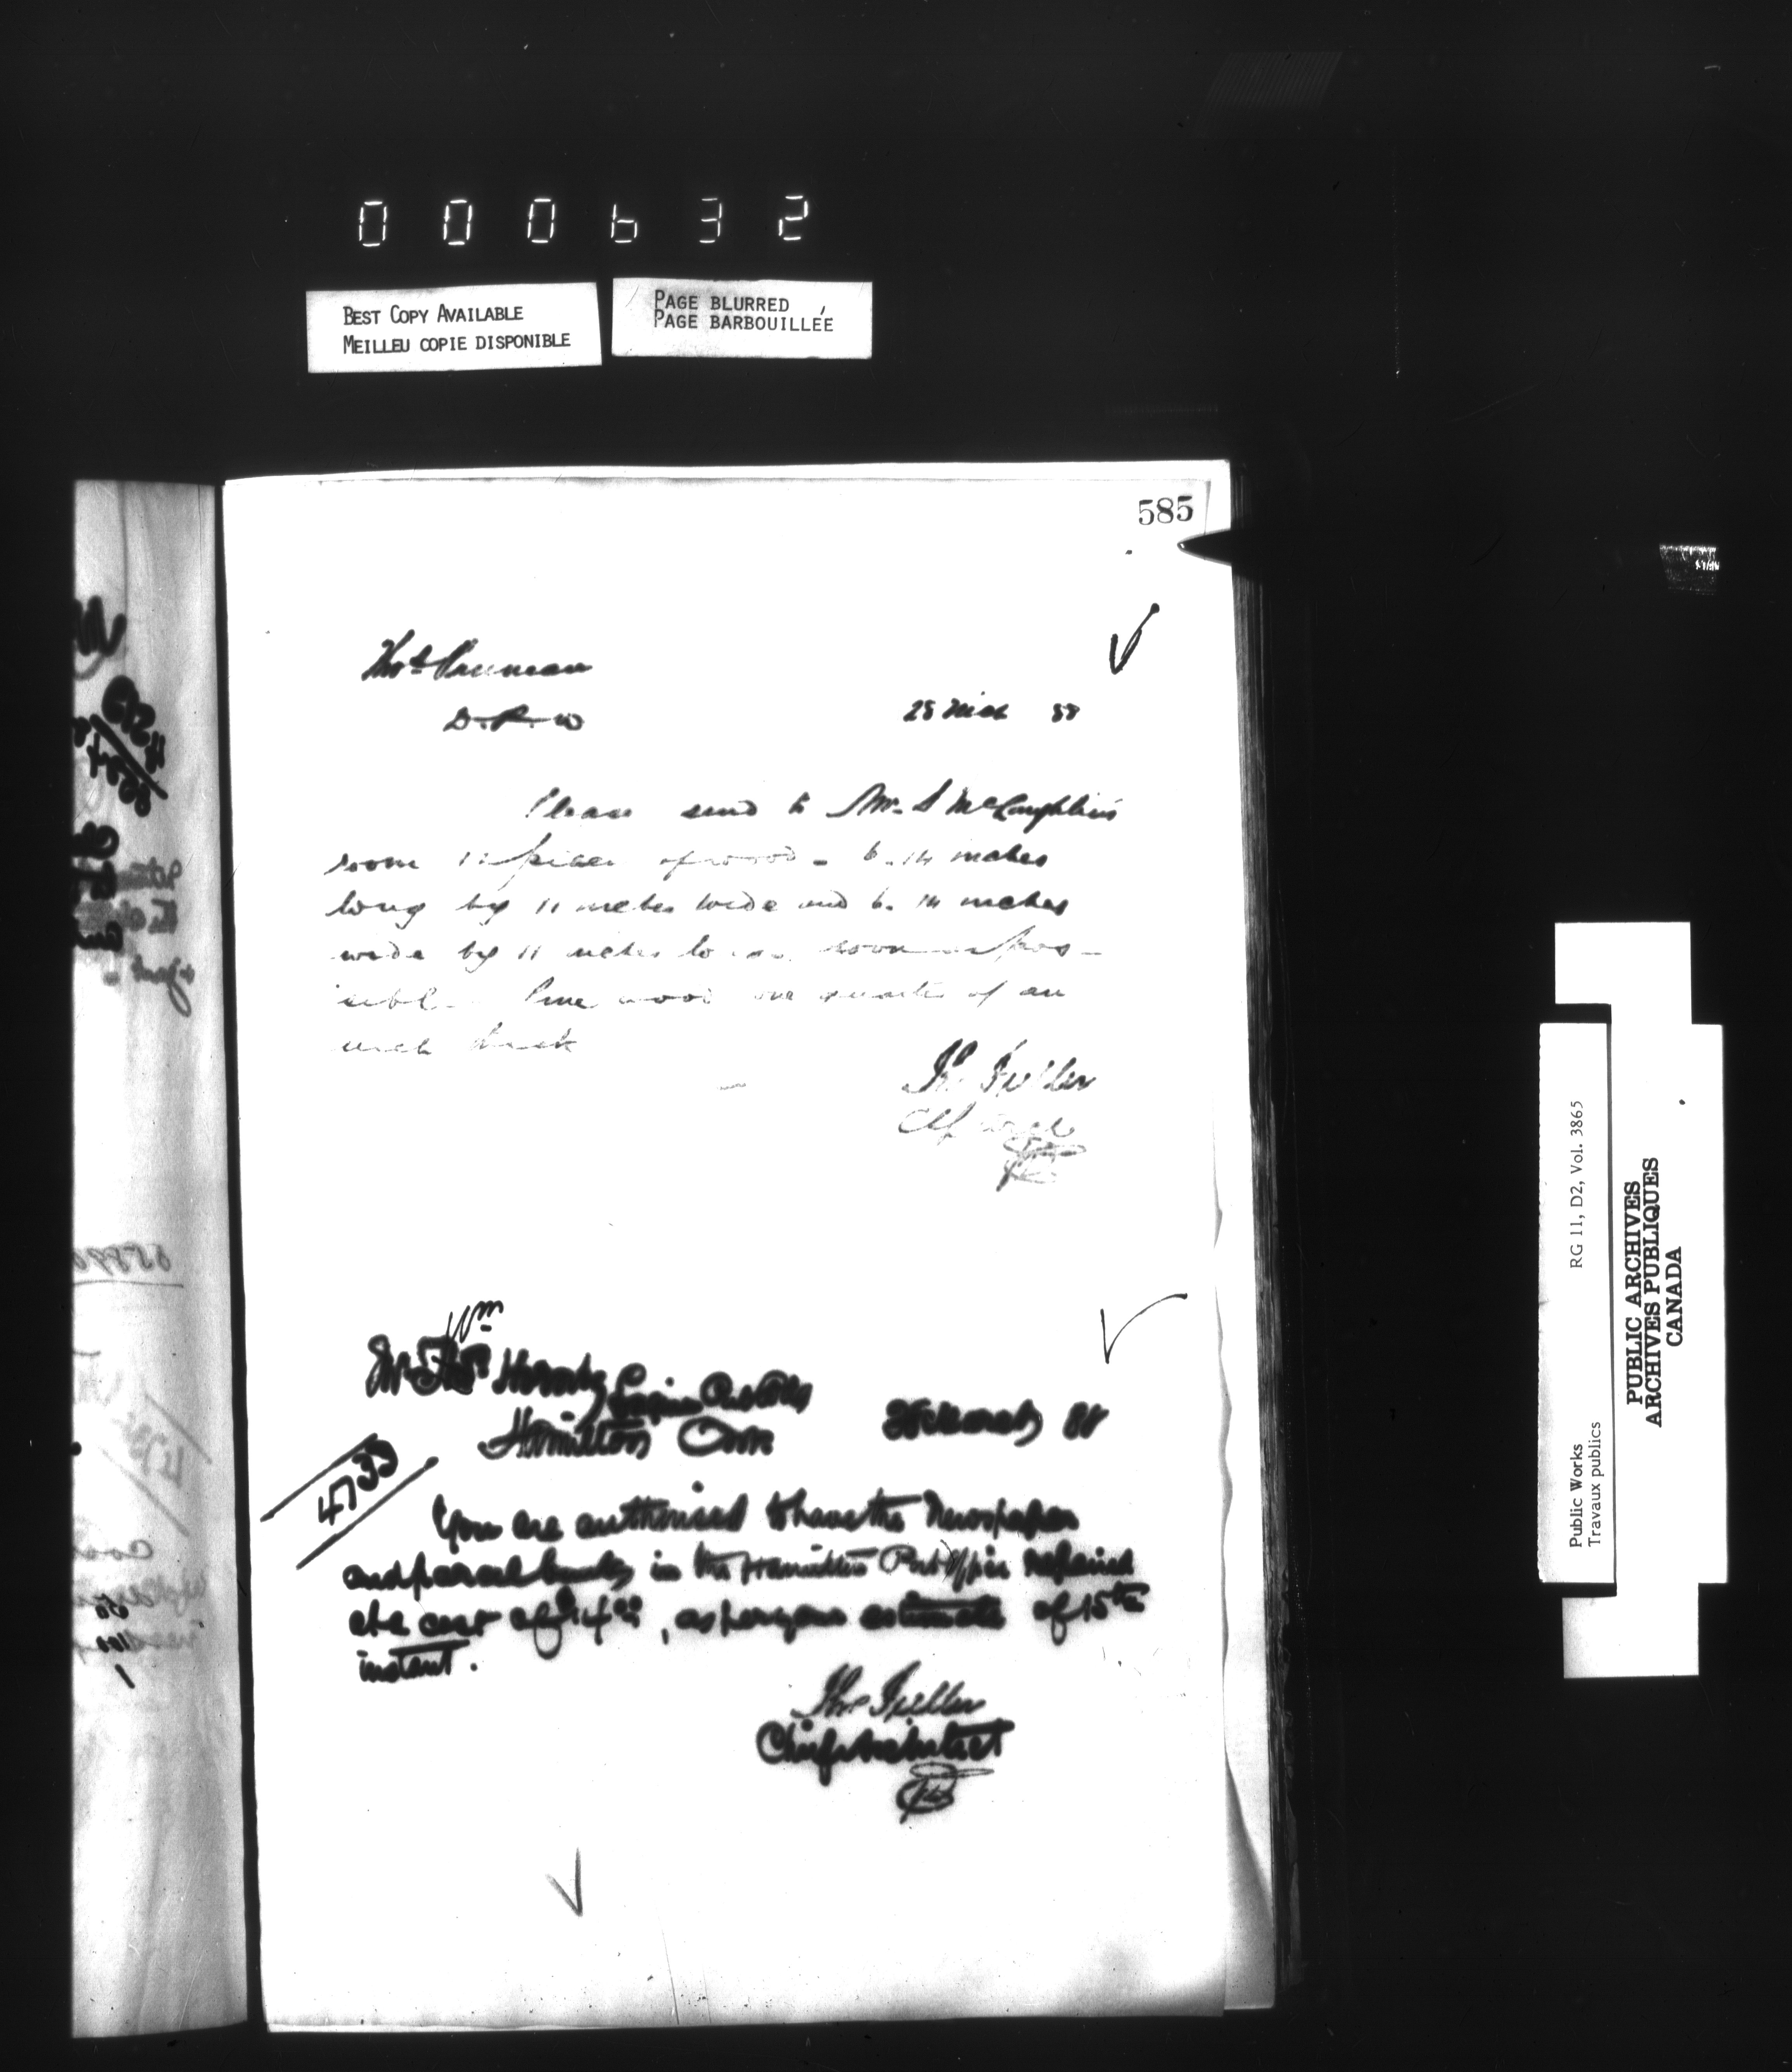 000632
BEST COPY AVAILABLE
MEILLEU COPIE DISPONIBLE
PAGE BLURRED
PAGE BARBOUILLÉE
585
Thos
D. P. W
28 Mch 88
Please send to Mr. S McLaughlin's
room 12 pieces of wood - 6. 14 inches
long by 11 inches wide and 6. 14 inches
wide by 11 inches long as soon as pos-
sible. Pine wood one quarter of an
inch thick
Th. Fuller
Ch Arch
Wm
Mr Thos Hornby
Hamilton Ont
March 88
4739
You are authorised to have the Newspaper
and parcel in the Hamilton Post Office repaired
at a cost of $14.00, as per your estimate of 15th
instant.
Thos Fuller
Chief Architect
Public Works
Travaux publics
RG 11, D2, Vol. 3865
PUBLIC ARCHIVES
ARCHIVES PUBLIQUES
CANADA